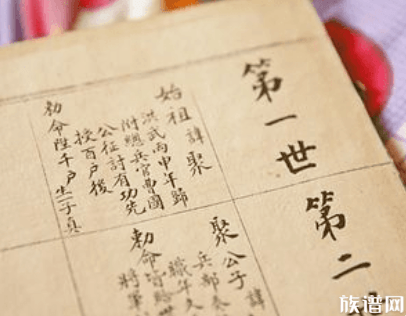 第一世
始祖諱聚
洪武丙申年歸
附總兵官曹國
公征討有功先
授百戶後
勅命陞千戶生一子真
第二
聚公子諱
兵部奏
職年久
勅命皆
將軍
族谱网